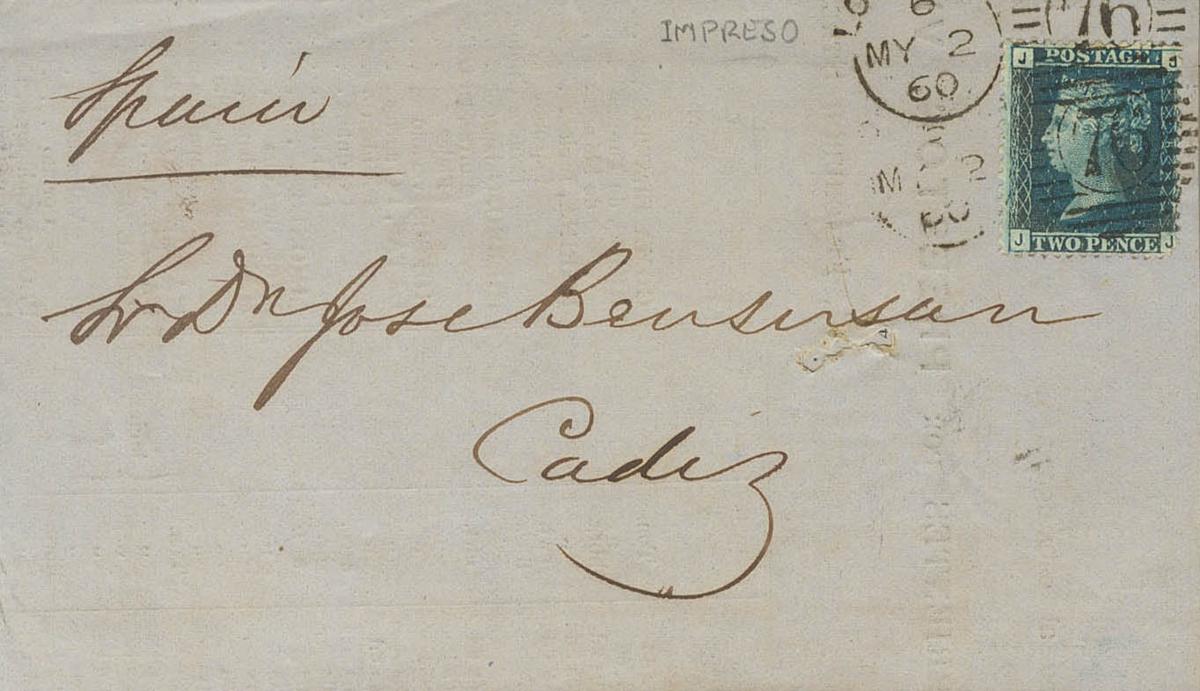 IMPRESO
6
76
MY 2
60
J POSTAGE J
76
A
M 2
60
J TWO PENCE J
Spain
Sr Dn Jose Bensusan
Cadiz